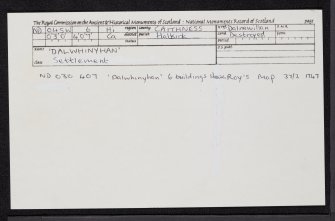 The Royal Commission on the Ancient & Historical Monuments of Scotland - National Monuments Record of Scotland
ND 04SW 6 H1 region CAITHNESS Dalnawillan
030 407 Ca Halkirk Destroyed
name 'DALWHINYHAN'
class Settlement
ND 030 407 'Dalwhinyhan' 6 buildings Roy's Map 37/3 1747